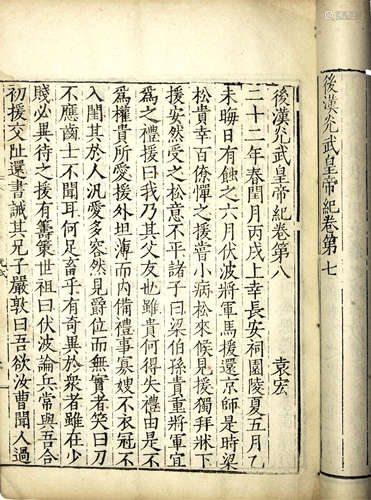 後漢光武皇帝紀卷第七
後漢光武皇帝紀卷第八
袁宏
二十二年春閏月丙戌上幸長安祠園陵夏五月乙
未晦日有蝕之六月伏波將軍馬援還京師是時梁
松貴幸百僚憚之援嘗小病松來候見援獨拜牀下
援安然受之松意不平諸子曰梁伯孫貴重將軍宜
為之禮援曰我乃其父友也雖貴何得失禮由是不
為權貴所愛援外坦薄而内備禮事寡嫂不衣冠不
入閨其於人汎愛多容然見爵位而無實者笑曰刀
不應齒士不聞耳何足畜乎有奇異於衆者雖在少
賤必異待之援有籌策世祖曰伏波論兵常與吾合
初援交阯還書誡其兄子嚴敦曰吾欲汝曹聞人過